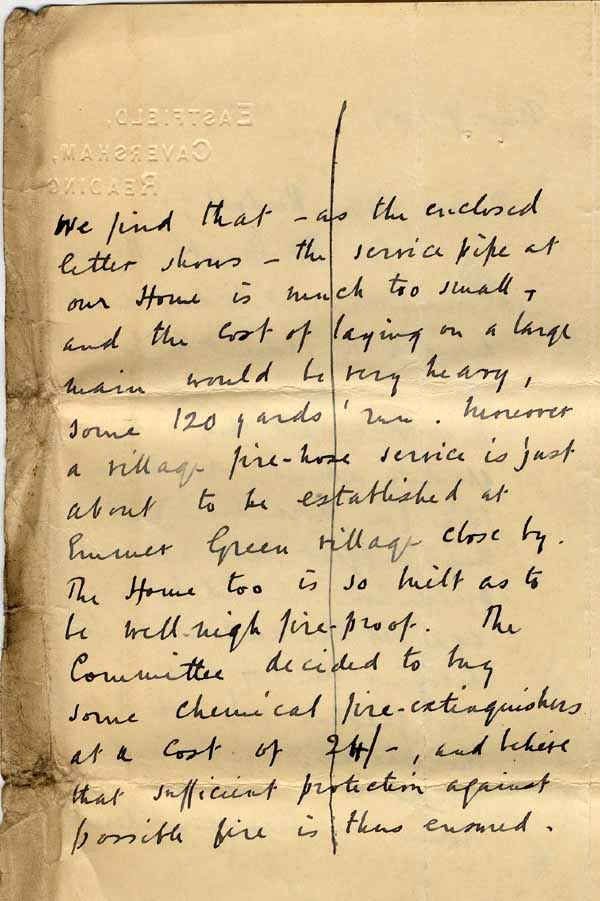 EASTFIELD,
CAVERSHAM,
READING
We find that – as the enclosed
letter shows – the service pipe at
our Home is much too small,
and the cost of laying on a large
main would be very heavy,
some 120 yards' run. Moreover
a village fire-hose service is just
about to be established at
Emmer Green village close by.
The Home too is so built as to
be well-nigh fire-proof. The
Committee decided to buy
some chemical fire-extinguishers
at a cost of 24/-, and believe
that sufficient protection against
possible fire is thus ensured.